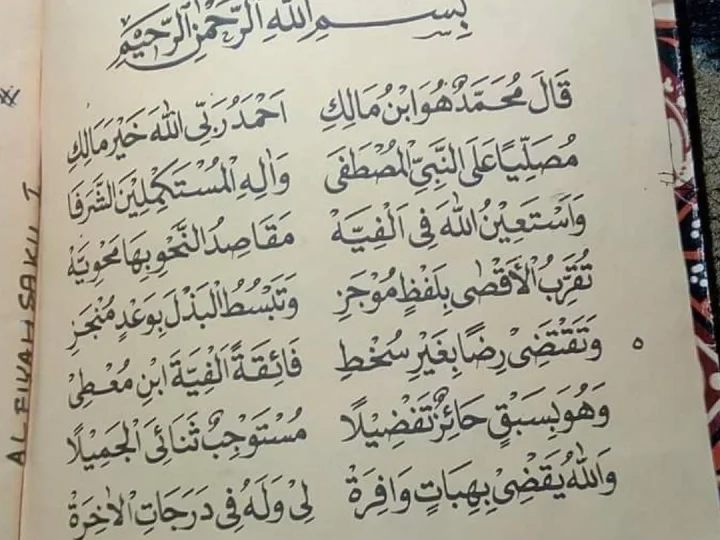 بِسْمِ اللهِ الرَّحْمٰنِ الرَّحِيْمِ
قَالَ مُحَمَّدٌ هُوَ ابْنُ مَالِكِ اَحْمَدُ رَبِّى اللهَ خَيْرَ مَالِكِ
مُصَلِّيًا عَلَى النَّبِيِّ الْمُصْطَفَى وَاٰلِهِ الْمُسْتَكْمِلِيْنَ الشَّرَفَا
وَاَسْتَعِيْنُ اللهَ فِى اَلْفِيَّهْ مَقَاصِدُ النَّحْوِ بِهَا مَحْوِيَّهْ
تُقَرِّبُ الْأَقْصٰى بِلَفْظٍ مُوْجَزِ وَتَبْسُطُ الْبَذْلَ بِوَعْدٍ مُنْجَزِ
وَتَقْتَضِى رِضًا بِغَيْرِ سُخْطِ فَائِقَةً اَلْفِيَّةَ ابْنِ مُعْطِى ٥
وَهُوَ بِسَبْقٍ حَائِزٌ تَفْضِيْلًا مُسْتَوْجِبٌ ثَنَائِىَ الْجَمِيْلَا
وَاللهُ يَقْضِىْ بِهِبَاتٍ وَافِرَةْ لِىْ وَلَهُ فِى دَرَجَاتِ الْاٰخِرَةْ
ALFIYAH SAKU 1